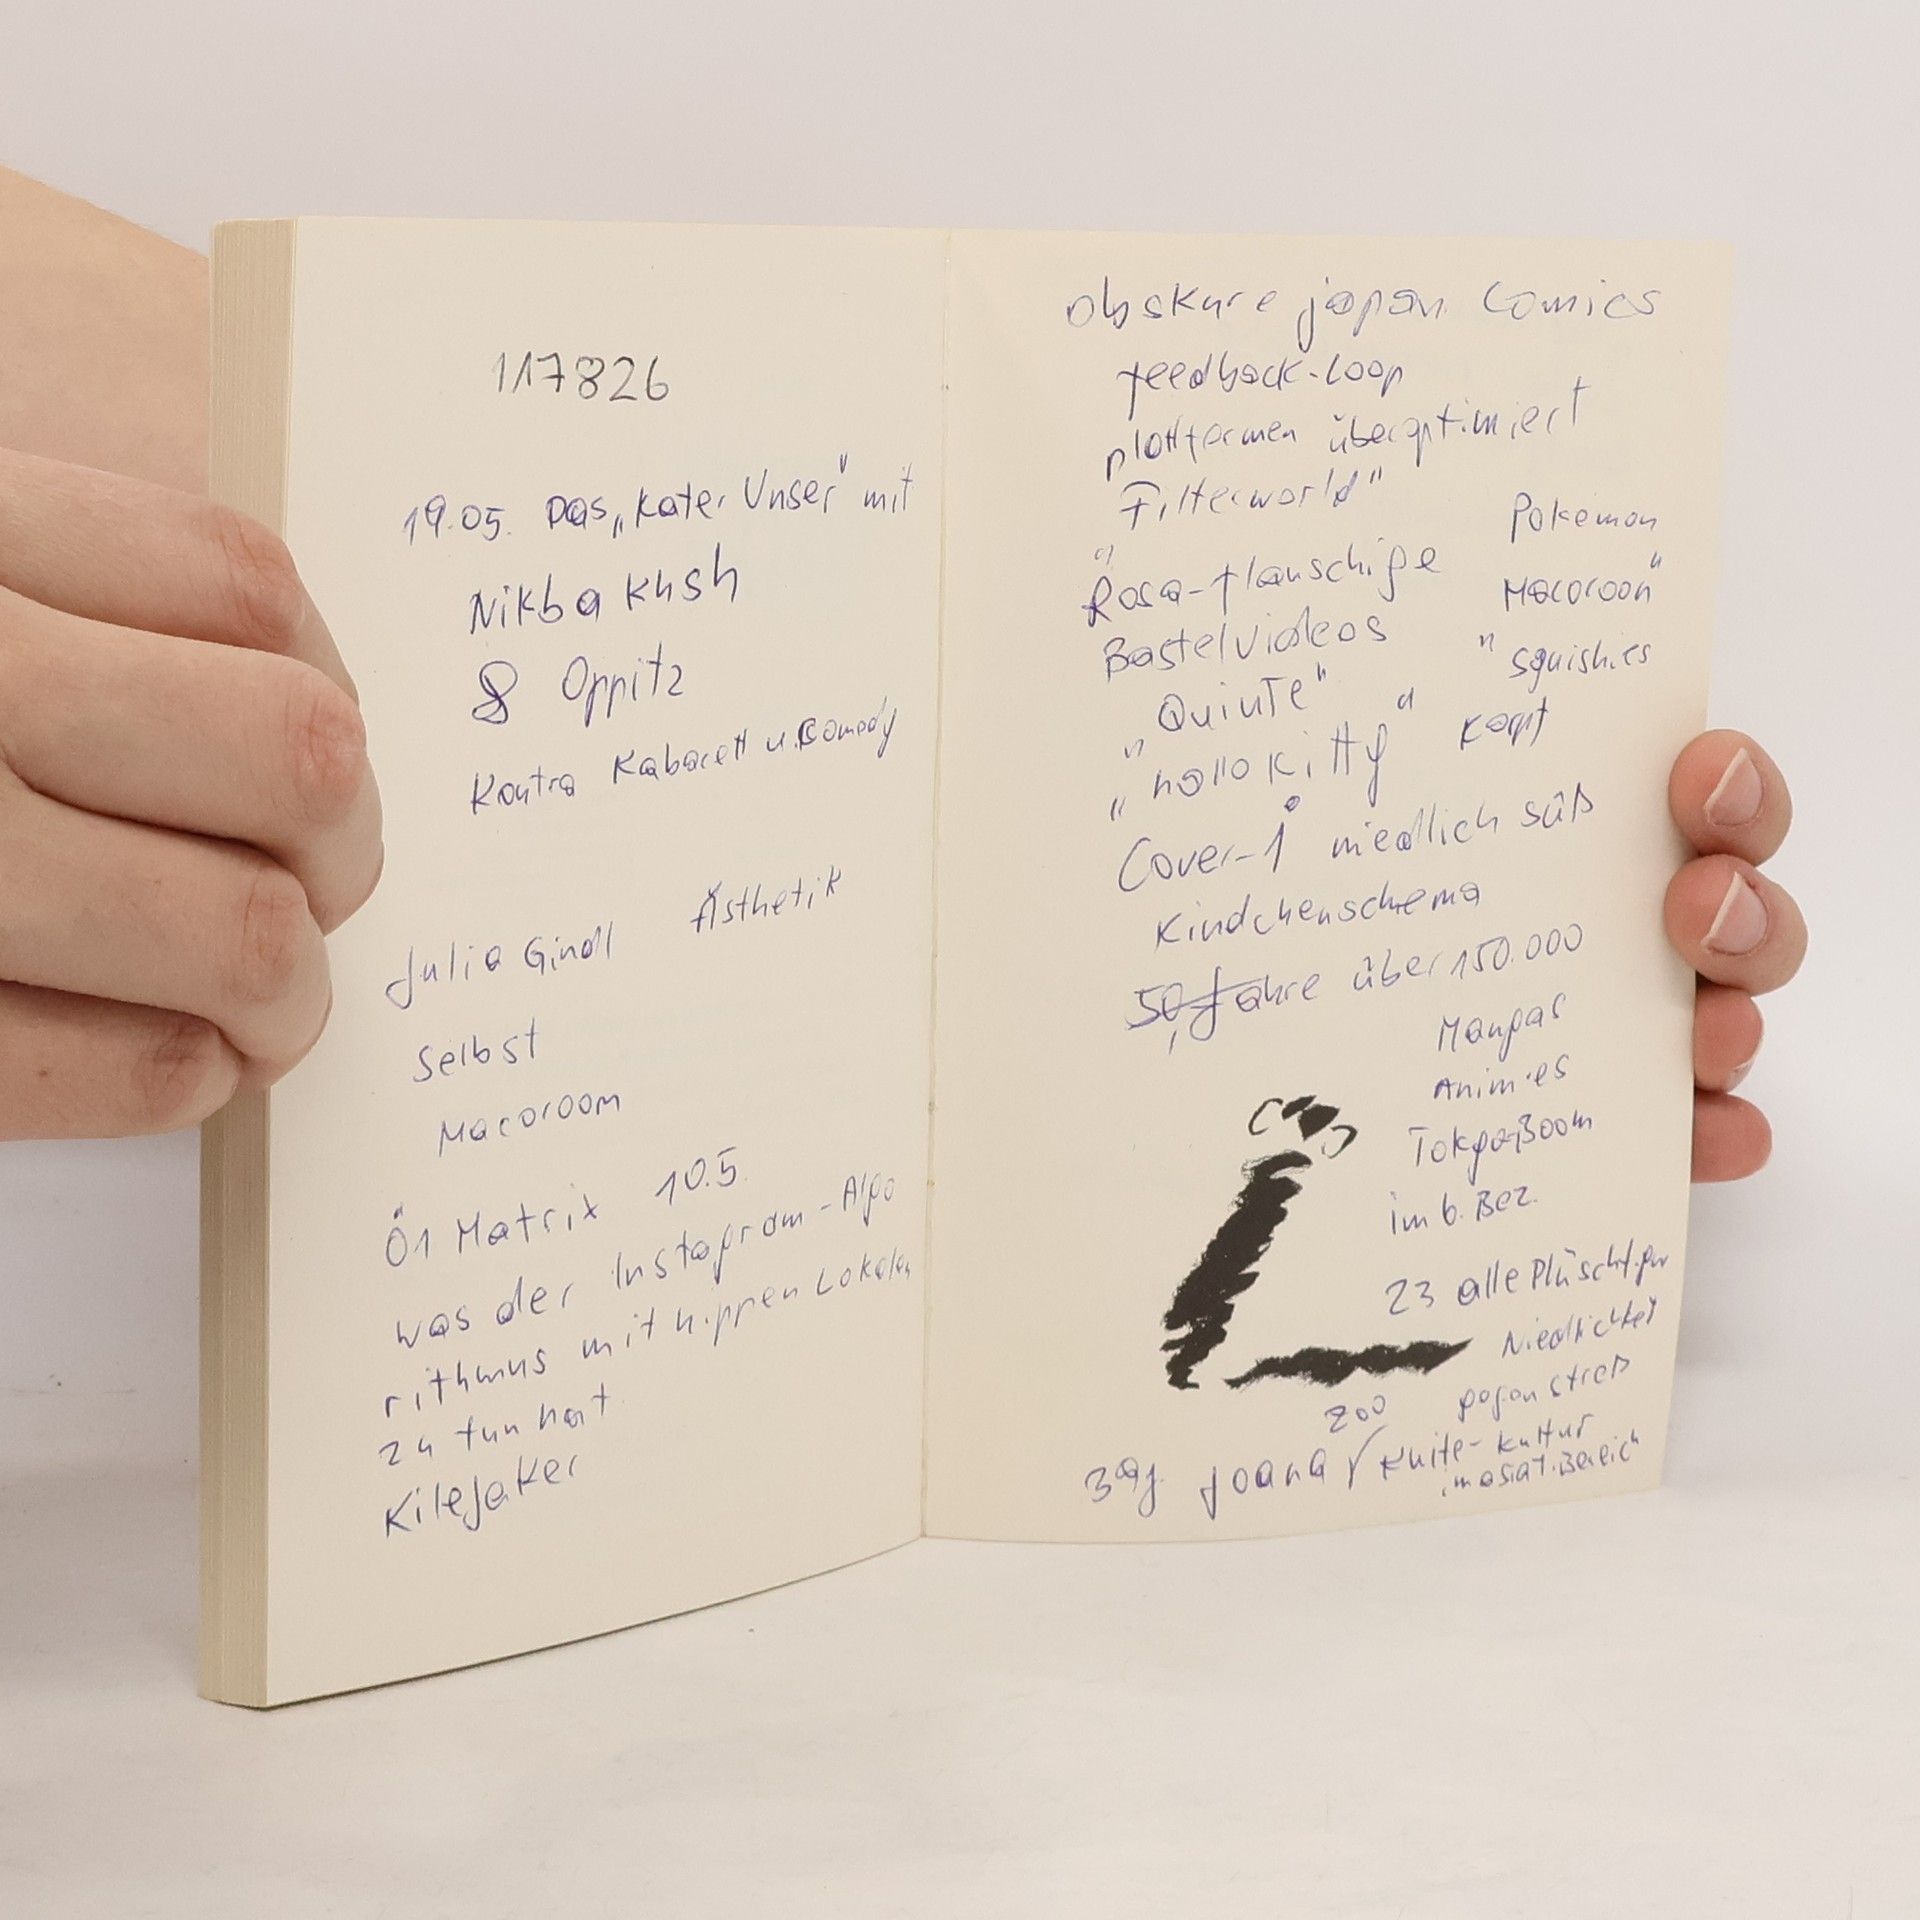 117826
19.05. Das „Kater Unser" mit
Nikbakhsh
& Oppitz
Kontra Kabarett u. Comedy
Ästhetik
Julia Gindl
Selbst
Macoroom
Ö1 Matrix 10.5.
was der Instagram-Algo
rithmus mit hippen Lokalen
zu tun hat
obskure japan Comics
feedback-Loop
plattformen überoptimiert
"Filterworld"
Pokemon
Rosa-flauschige
Macoroon"
Bastelvideos
" Squishies
„Quinte"
„hallo Kitty"
Cover-1 niedlich süß
Kindchenschema
50 Jahre über 150.000
Mangas
Animes
Tokyo-Boom
im 6. Bez.
23 alle Plüschfigur
Niedlichkeit
gegen Streß
Joana
Kultur
im asiat. Bereich